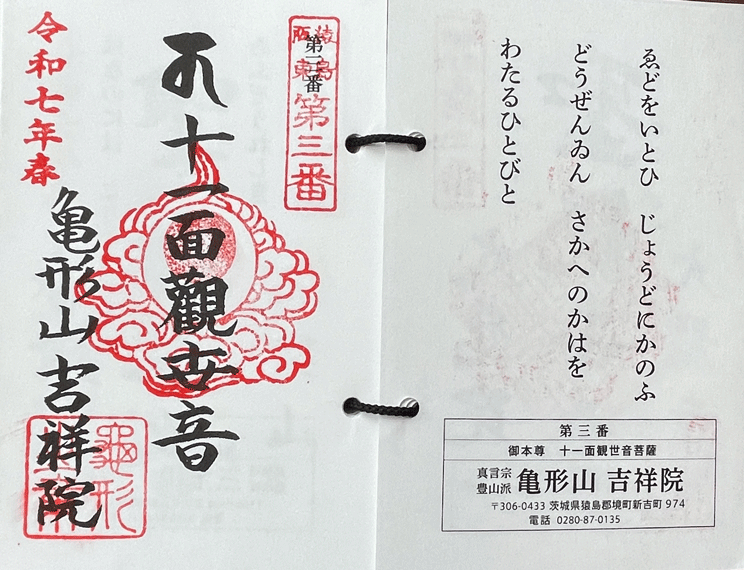 ゑどをいとひ　じょうどにかのふ
どうぜんゐん　さかへのかはを
わたるひとびと
第三番
御本尊　十一面観世音菩薩
真言宗
豊山派
亀形山 吉祥院
〒306-0433 茨城県猿島郡境町新吉町 974
電話 0280-87-0135
猿島
阪東
第三番
第三番
十一面觀世音
亀形山 吉祥院
令和七年春
龜形